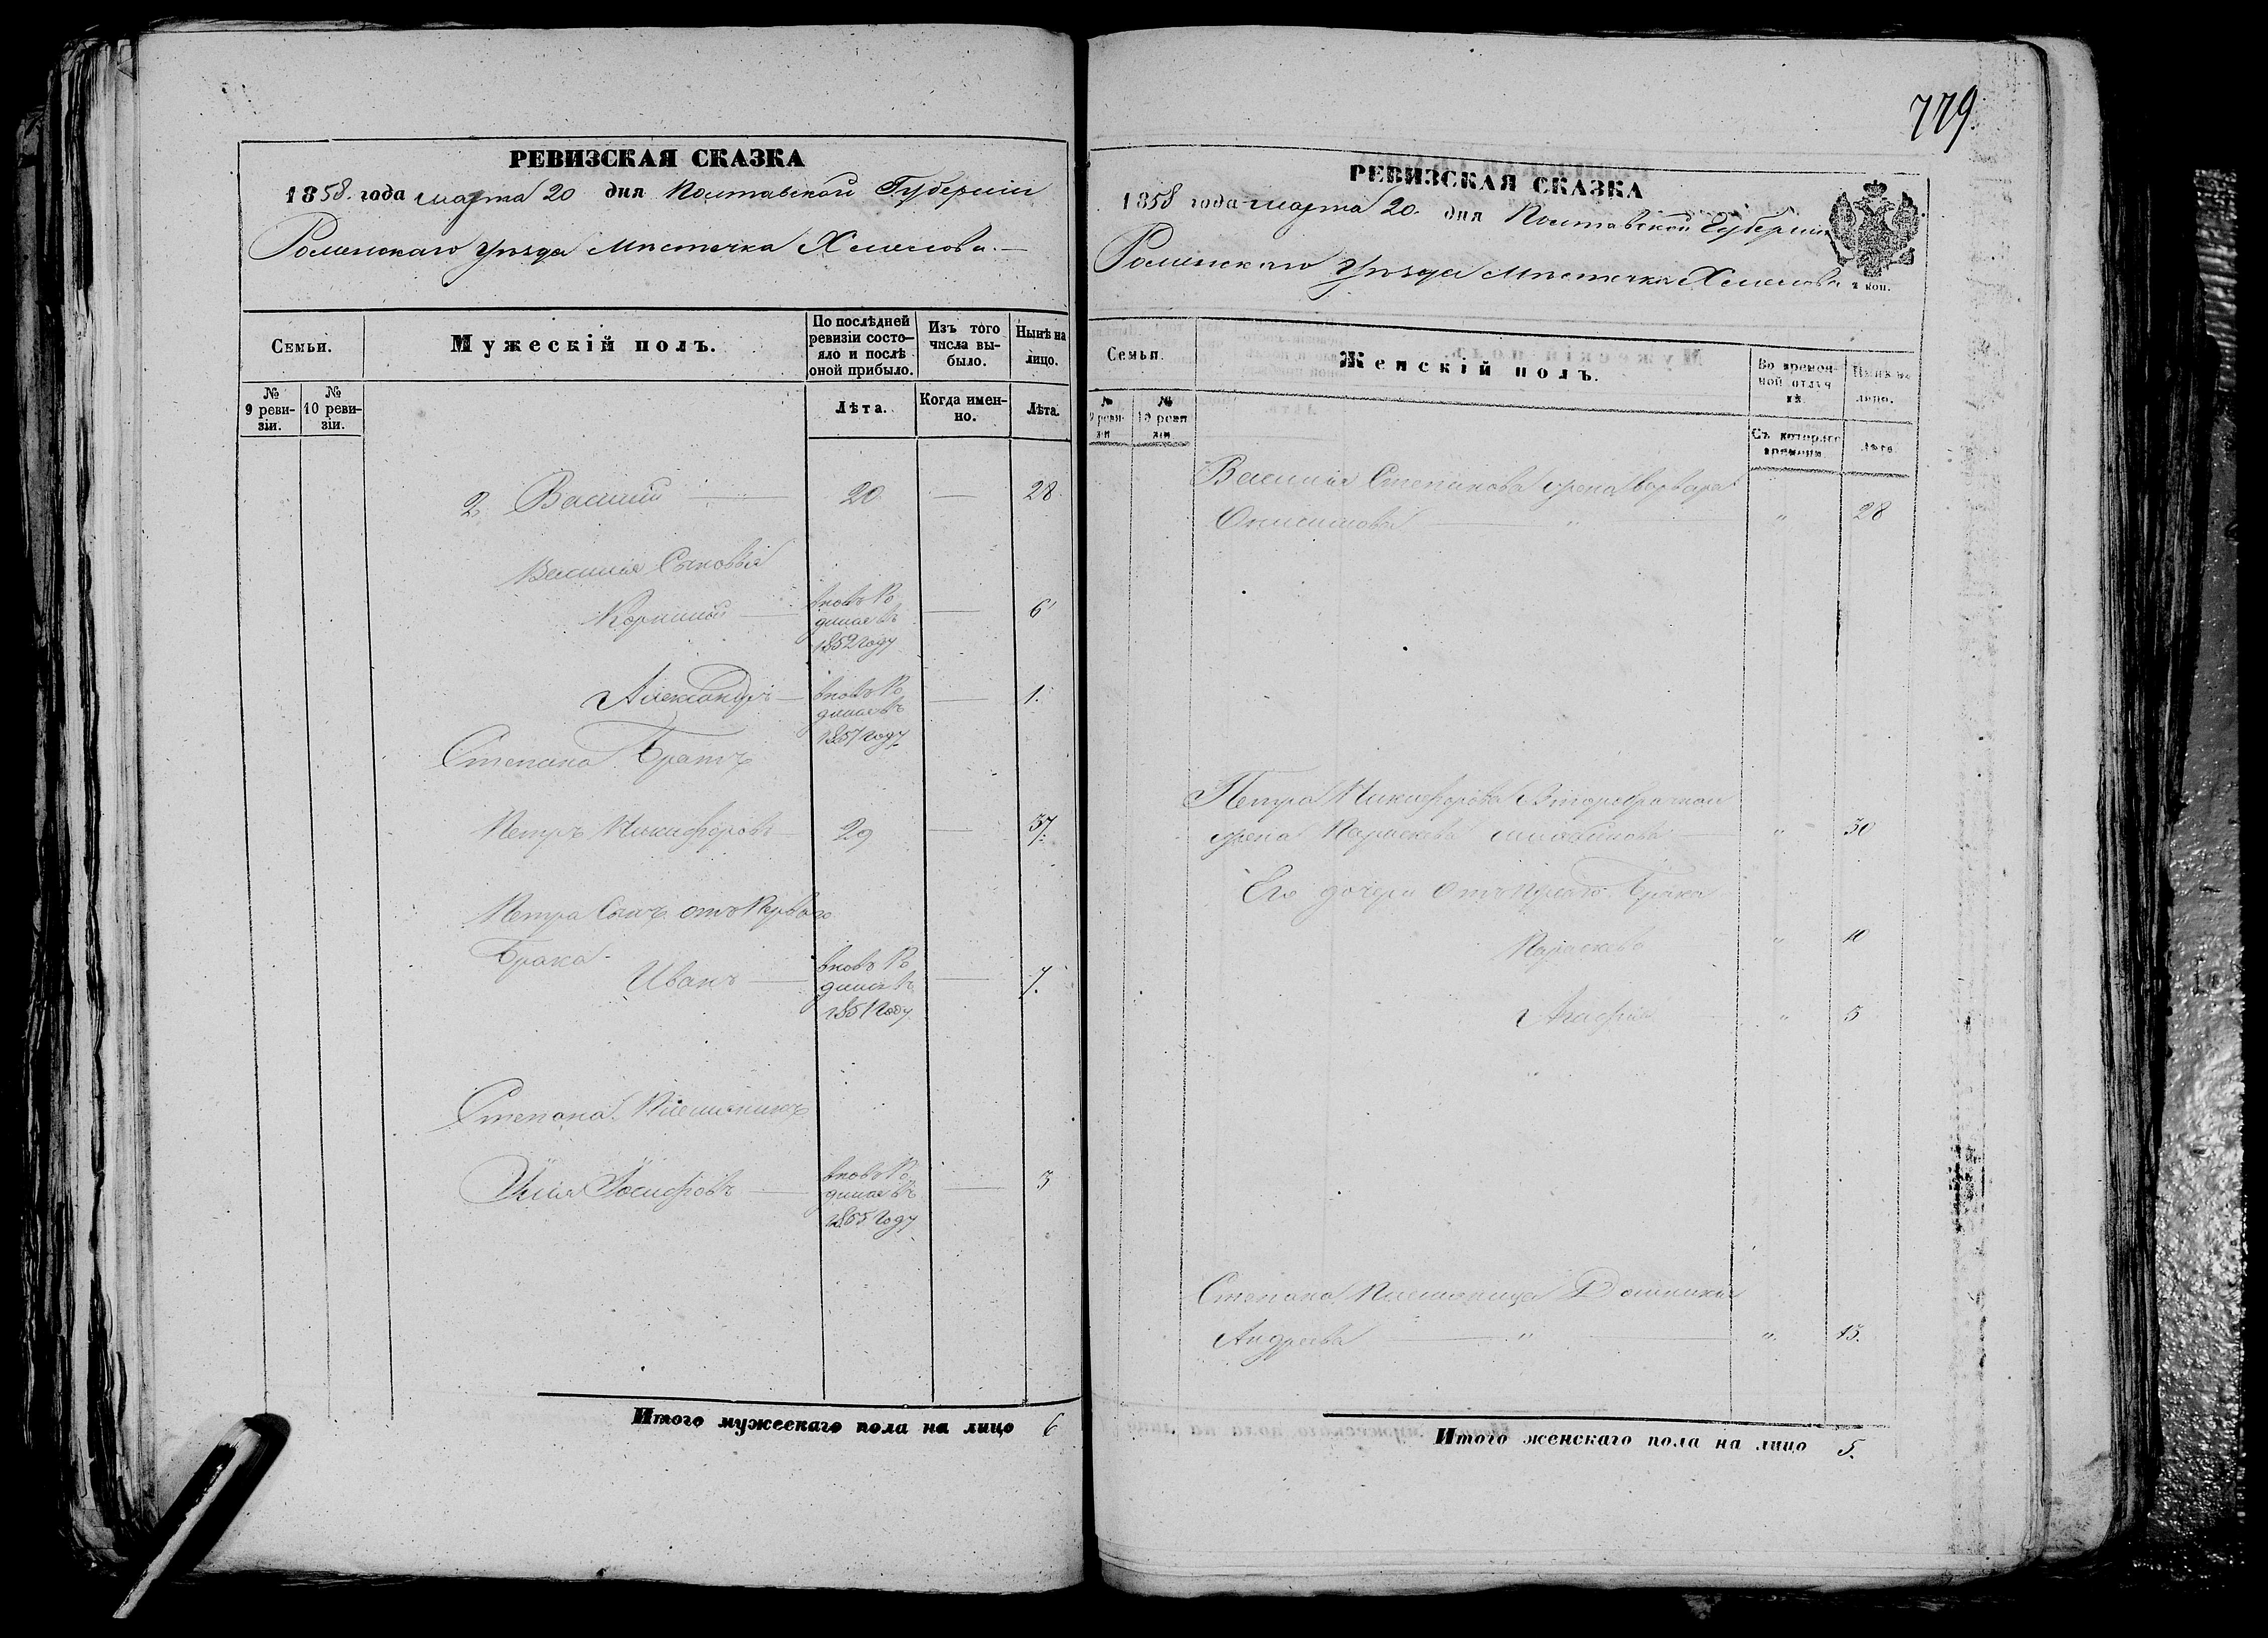 779.
РЕВИЗСКАЯ СКАЗКА
1858. года марта 20 дня Полтавской Губерніи
Роменскаго уѣзда Мѣстечка Хмелова.
Семьи.
Мужескій полъ.
По послѣдней ревизіи состояло и послѣ оной прибыло.
Изъ того числа выбыло.
Нынѣ на лицо.
№ 9 ревизіи.
№ 10 ревизіи.
Лѣта.
Когда именно.
Лѣта.
2. Василий 20 — 28
Василия Сыновья
Корнилий вновь родился въ 1852 году — 6
Александръ вновь родился въ 1857 году — 1.
Степана Братъ
Петръ Никифоровъ 29 — 37.
Петра Сынъ отъ Перваго
Брака
Иванъ вновь родился въ 1851 году — 7.
Степана Племянникъ
Илія Іосифовъ вновь родился въ 1855 году — 3
Итого мужескаго пола на лицо 6
РЕВИЗСКАЯ СКАЗКА
1858 года марта 20. дня Полтавской Губерніи
Роменскаго уѣзда Мѣстечка Хмелова
коп.
Семьи.
Женскій полъ.
Во временной отлучкѣ
Нынѣ на лицо.
№ 9 ревизіи
№ 10 ревизіи
Съ котораго времени
Лѣта
Василия Степанова жена Варвара
Онисимова " " 28
Петра Никифорова Второбрачная
жена Параскева " 30
Его дочери отъ перваго Брака
Параскева " 10
Агафія " 5
Степана Племяница Домникия
Андреева " " 13.
Итого женскаго пола на лицо 5.